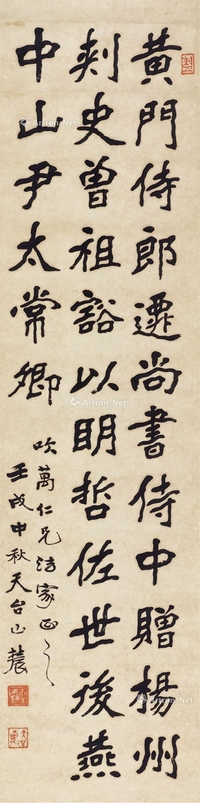 黃門侍郎遷尚書侍中贈楊州
刾史曾祖谿以明哲佐世後燕
中山尹太常卿
吹萬仁兄法家正之
壬戌中秋天台山農